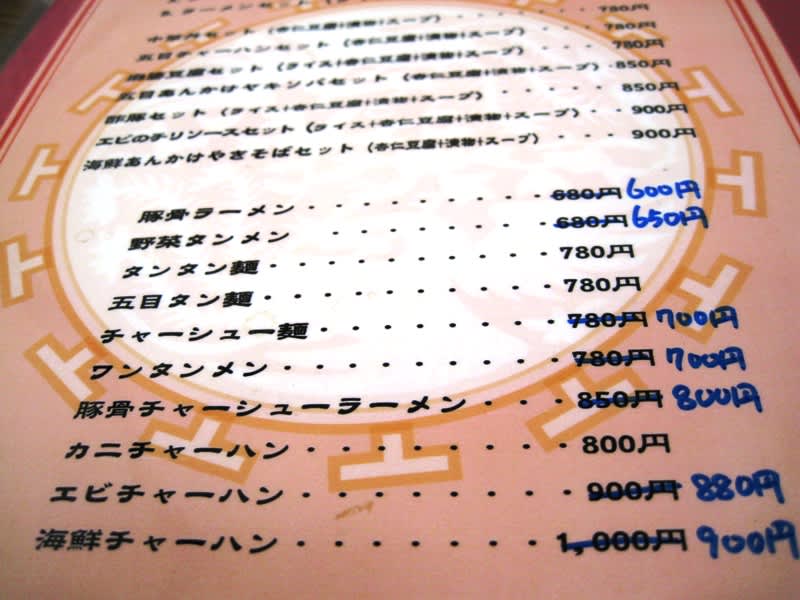 ラーメンセット 780円
中華丼セット（杏仁豆腐+漬物+スープ） 780円
五目チャーハンセット（杏仁豆腐+漬物+スープ）・・ 780円
麻婆豆腐セット（ライス+杏仁豆腐+漬物+スープ）・ 850円
五目あんかけヤキソバセット（杏仁豆腐+漬物+スープ） 850円
酢豚セット（ライス+杏仁豆腐+漬物+スープ）・・・・ 900円
エビのチリソースセット（ライス+杏仁豆腐+漬物+スープ）・・ 900円
海鮮あんかけやきそばセット（杏仁豆腐+漬物+スープ）
豚骨ラーメン・・・・・・・・・680円 600円
野菜タンメン ・・・・・・・・680円 650円
タンタン麺・・・・・・・・・・780円
五目タン麺・・・・・・・・・・780円
チャーシュー麺・・・・・・・・780円 700円
ワンタンメン・・・・・・・・・780円 700円
豚骨チャーシューラーメン・・・850円 800円
カニチャーハン・・・・・・・・800円
エビチャーハン・・・・・・・・900円 880円
海鮮チャーハン・・・・・・・・1,000円 900円